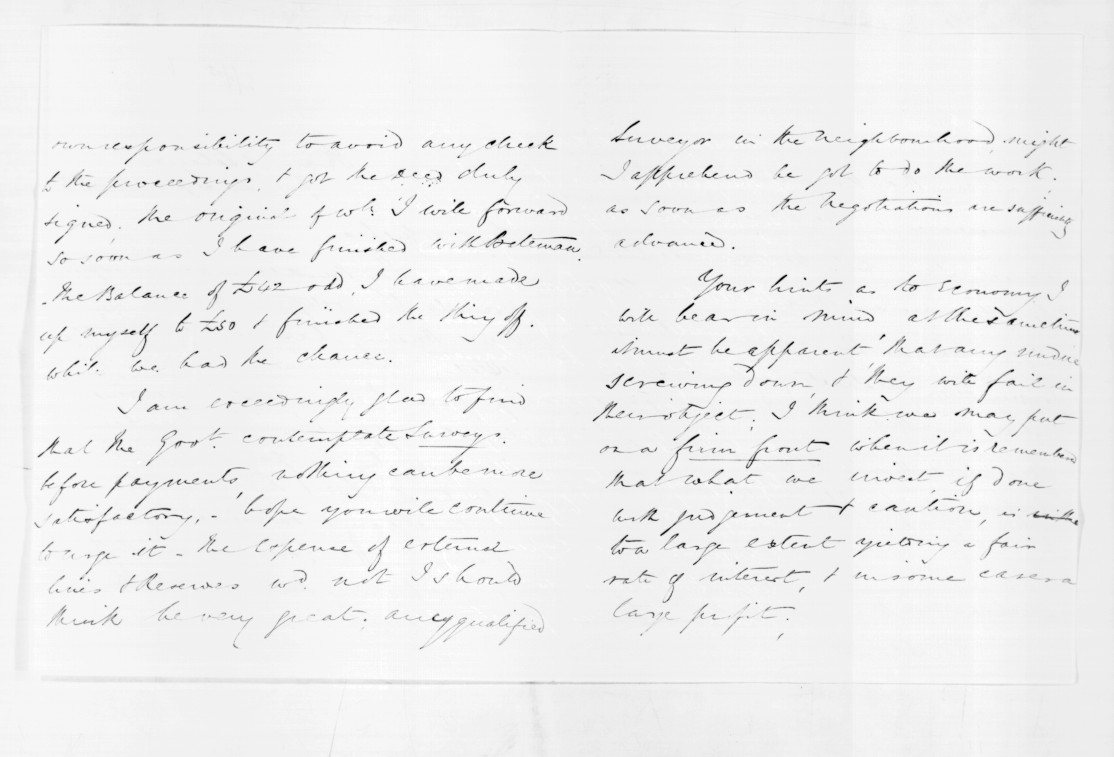 own responsibility to avoid any check
to the proceedings, & got the deed duly
signed. the original of wh: I will forward
so soon as I have finished with Bateman.
The Balance of £42 odd, I have made
up myself to £50 & finished the thing off.
whils we had the chance.
I am exceedingly glad to find
that the Govt. contemplate Surveys.
before payments, nothing can be more
satisfactory, - hope you will continue
to urge it - the expense of external
lines & Reserves wd. not I should
think be very great. any qualified
Surveyor in the neighbourhood, might
I apprehend be got to do the work.
as soon as the negotiations are suffiny
advanced.
Your hints as to Economy I
will bear in mind at the same time
it must be apparent, that any undue
screwing down, & they will fail in
their object. I think we may put
on a firm front when it is remembered
that what we invest, if done
with judgement & caution, is
to a large extent yielding a fair
rate of interest, & in some cases a
large profit.